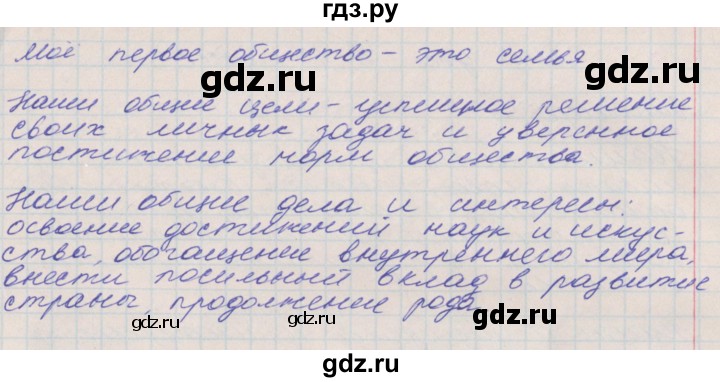 гдз.ру
Моё первое общество – это семья
gdz.ru gdz.ru
Наши общие цели – успешное решение
своих личных задач и уверенное
постижение норм общества.
gdz.ru gdz.ru
Наши общие дела и интересы:
освоение достижений наук и искус-
ства, обогащение внутреннего мира,
внести посильный вклад в развитие
страны, продолжение рода.
gdz.ru gdz.ru
gdz.ru